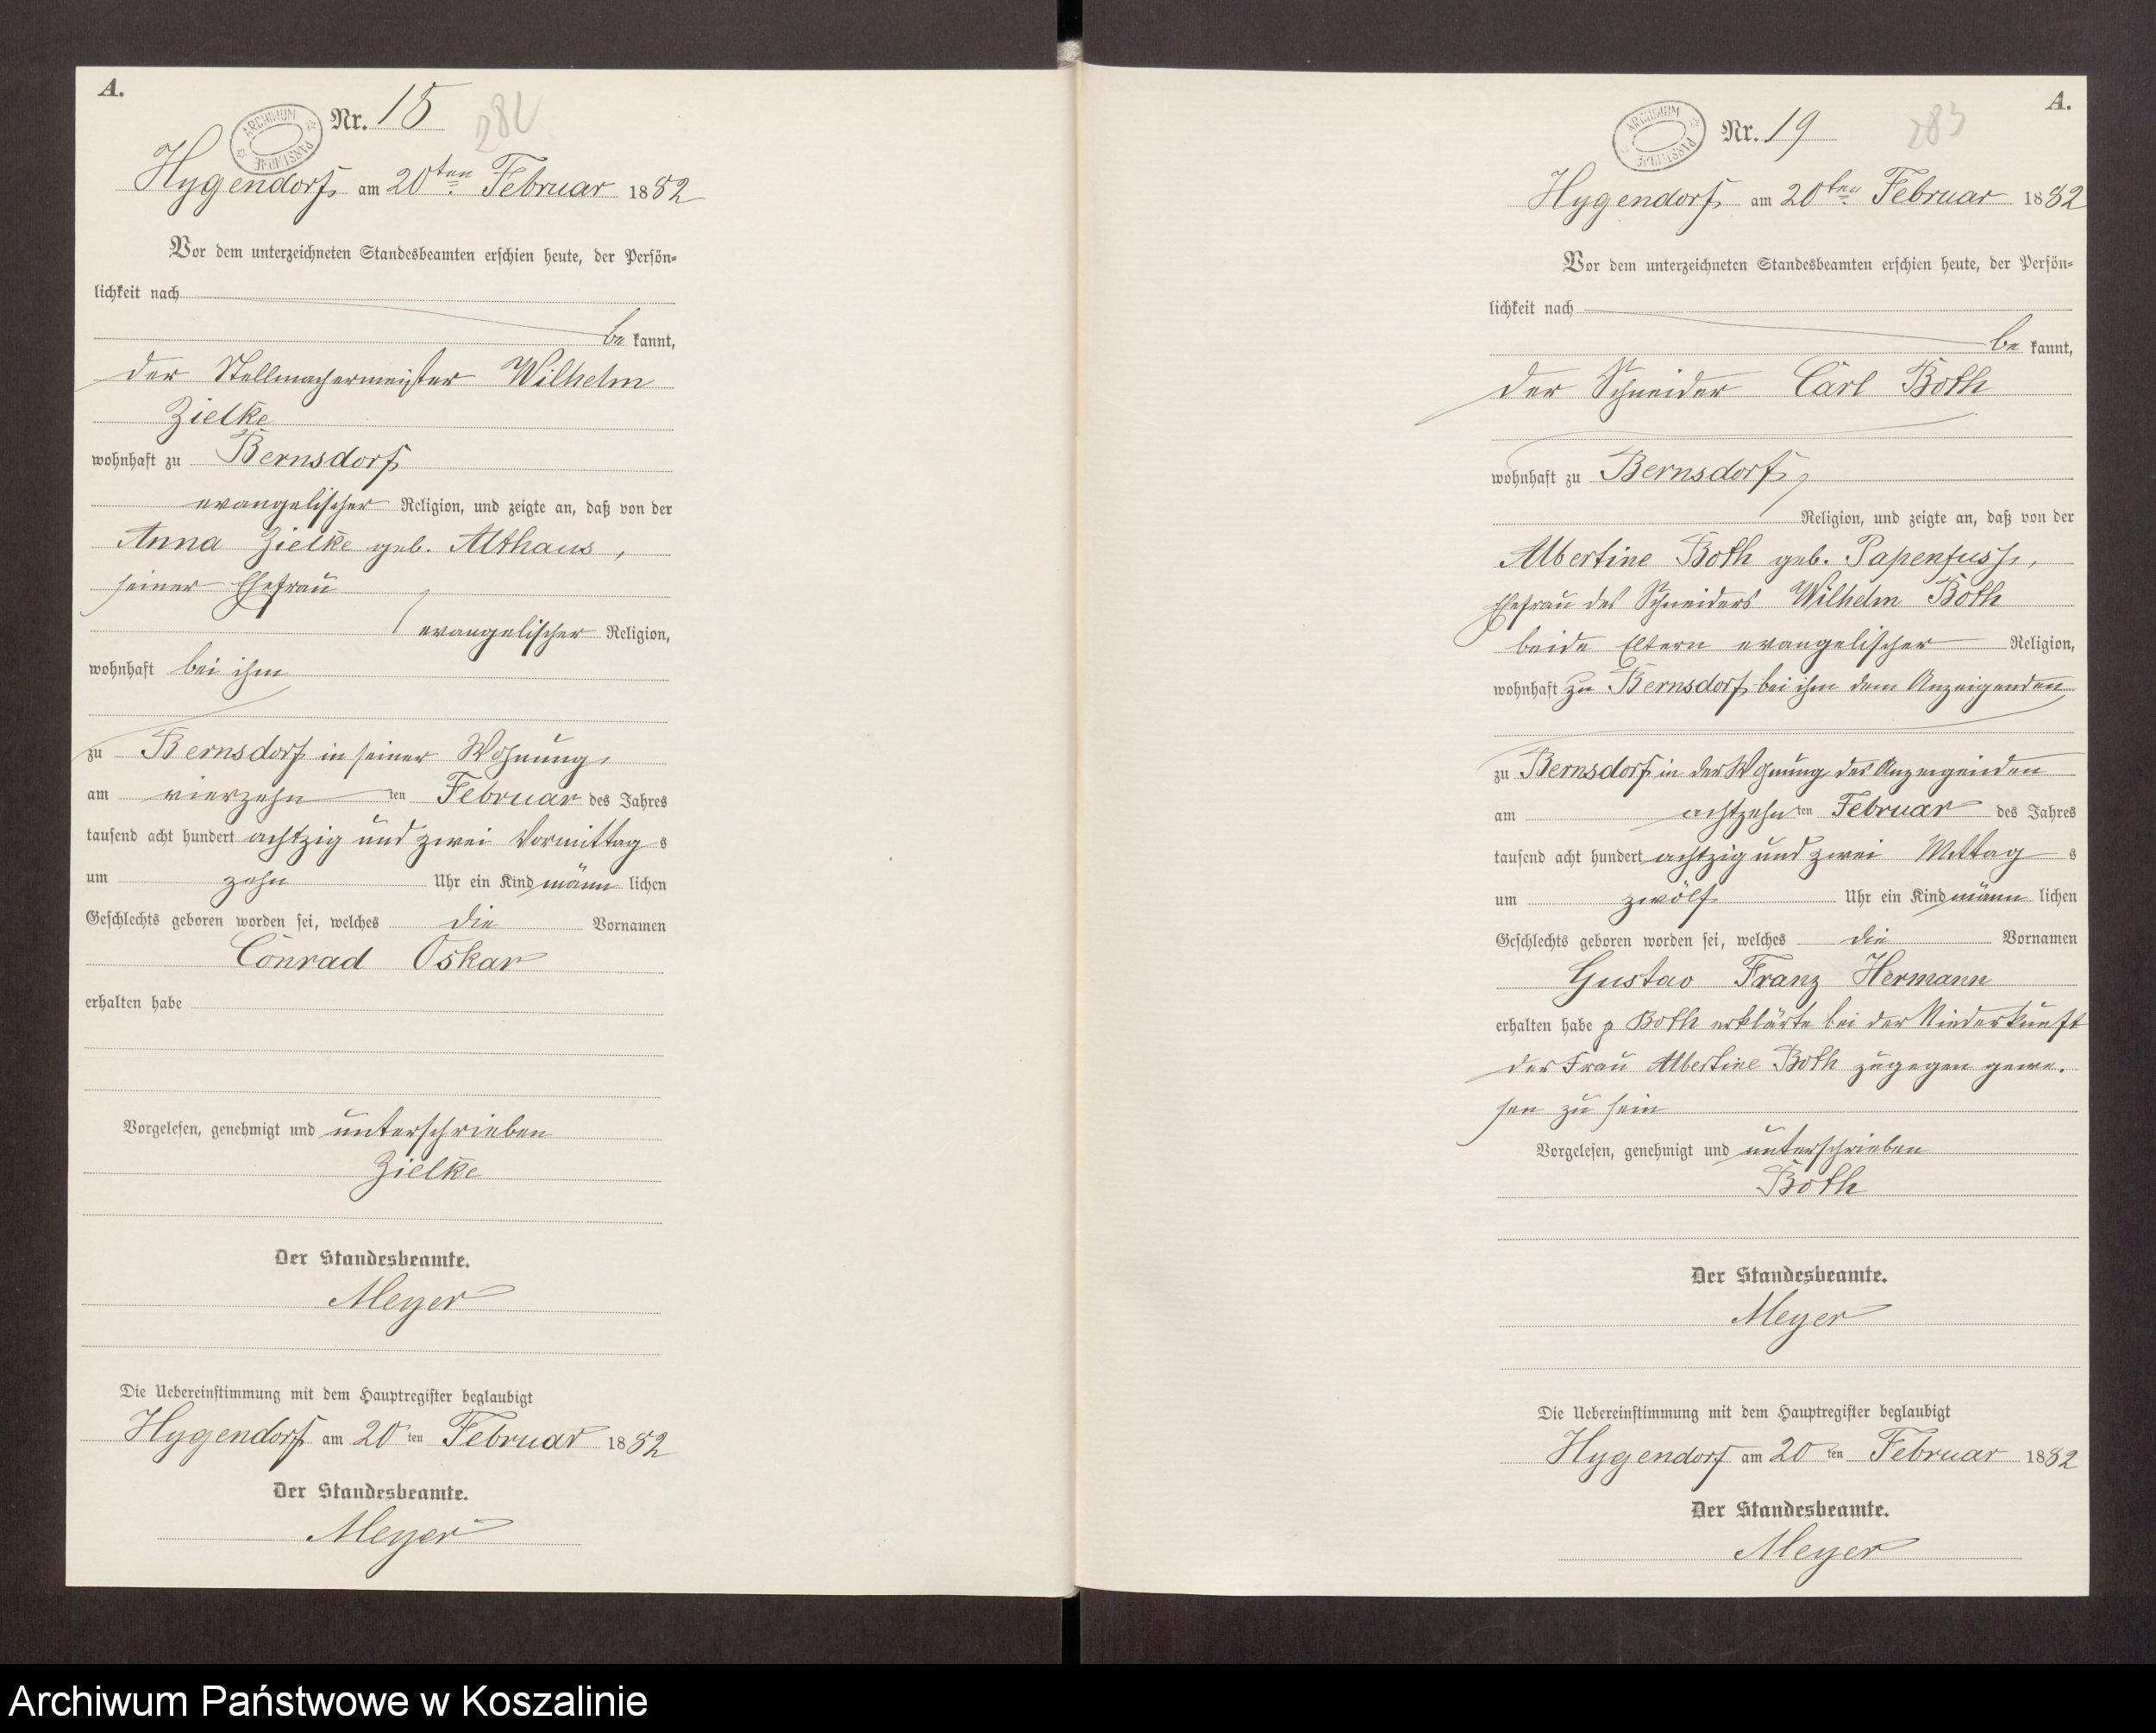 A.
Nr. 18
282
ARCHIWUM PAŃSTWOWE
Hygendorf am 20ten Februar 1882
Vor dem unterzeichneten Standesbeamten erschien heute, der Persön-
lichkeit nach
be kannt,
der Stellmachermeister Wilhelm
Zielke
wohnhaft zu Bernsdorf
evangelischer Religion, und zeigte an, daß von der
Anna Zielke geb. Althaus,
seiner Ehefrau
evangelischer Religion,
wohnhaft bei ihm
zu Bernsdorf in seiner Wohnung
am vierzehn ten Februar des Jahres
tausend acht hundert achtzig und zwei Vormittag s
um zehn Uhr ein Kind männ lichen
Geschlechts geboren worden sei, welches die Vornamen
Conrad Oskar
erhalten habe
Vorgelesen, genehmigt und unterschrieben
Zielke
Der Standesbeamte.
Meyer
Die Uebereinstimmung mit dem Hauptregister beglaubigt
Hygendorf am 20 ten Februar 1882
Der Standesbeamte.
Meyer
A.
Nr. 19
283
ARCHIWUM PAŃSTWOWE
Hygendorf am 20ten Februar 1882
Vor dem unterzeichneten Standesbeamten erschien heute, der Persön-
lichkeit nach
be kannt,
der Schneider Carl Both
wohnhaft zu Bernsdorf
Religion, und zeigte an, daß von der
Albertine Both geb. Papenfuss,
Ehefrau des Schneiders Wilhelm Both
beide Eltern evangelischer Religion,
wohnhaft zu Bernsdorf bei ihm dem Anzeigenden
zu Bernsdorf in der Wohnung des Anzeigenden
am achtzehn ten Februar des Jahres
tausend acht hundert achtzig und zwei Mittag s
um zwölf Uhr ein Kind männ lichen
Geschlechts geboren worden sei, welches die Vornamen
Gustav Franz Hermann
erhalten habe p Both erklärte bei der Niederkunft
der Frau Albertine Both zugegen gewe.
sen zu sein
Vorgelesen, genehmigt und unterschrieben
Both
Der Standesbeamte.
Meyer
Die Uebereinstimmung mit dem Hauptregister beglaubigt
Hygendorf am 20 ten Februar 1882
Der Standesbeamte.
Meyer
Archiwum Państwowe w Koszalinie